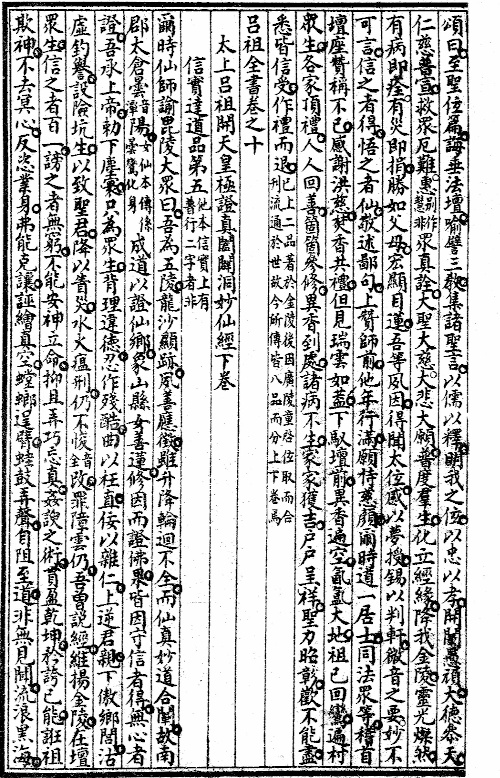 頌曰至聖位篇誨垂法壇喻譬三教集諸聖言以儒以釋明我之位以忠以孝開闡愚頑大德參天
仁慈普宣救眾厄難惠慧別作非眾真詮大聖大慈大悲大願普度羣生化立經緣降我金陵靈光燦然
有病即痊有災即捐勝如父母宏顯目蓮吾等夙因得聞太位感以夢授錫以判軒微音之要妙不
可言信之者得悟之者仙敬述鄙句上贊師前他年行滿願侍慈顏爾時道一居士同法眾等稽首
壇座贊稱不已感謝洪慈焚香共禮但見瑞雲如蓋下馭壇前異香遍空氤氳大地祖已回鸞遍村
眾生各家頂禮人人回善箇箇參修異香到處諸病不生家家獲吉戶戶呈祥聖力昭彰歡不能盡
悉皆信受作禮而退已上二品著於金陵後因廣陵童啓位取而合刊流通於世故今所傳皆八品而分上下卷焉
呂祖全書卷之十
太上呂祖開天皇極證真闔闢洞妙仙經下卷
信實達道品第五他本信實上有普行二字者非
爾時仙師諭毘陵大眾曰吾為五陵龍沙顯跡夙善應徵雖升降輪迴不全而仙真妙道合闡故南
郡太倉曇音潭陽女仙本傳係曇鸞化身成道以證仙鄉象山縣女善蓮修因而證佛果皆因守信者得無心者
證吾承上帝勅下塵寰只為眾生背理違德忍作殘酷曲以枉直佞以雜仁上逆君親下傲鄉閭沽
虛釣譽設險坑生以致聖君降以菁災水火瘟刑仍不悛音詮改罪障雲仍吾曾說經維揚金陵在壇
眾生信之者百一謗之者無窮不能安神立命抑且弄巧忘真姦諛之術貫盈乾坤矜誇已能誑祖
欺神不去冥心反恣業身弗能克讓誣繪真空螳螂逞臂蛙鼓弄聲自阻至道非無見聞流浪黑海